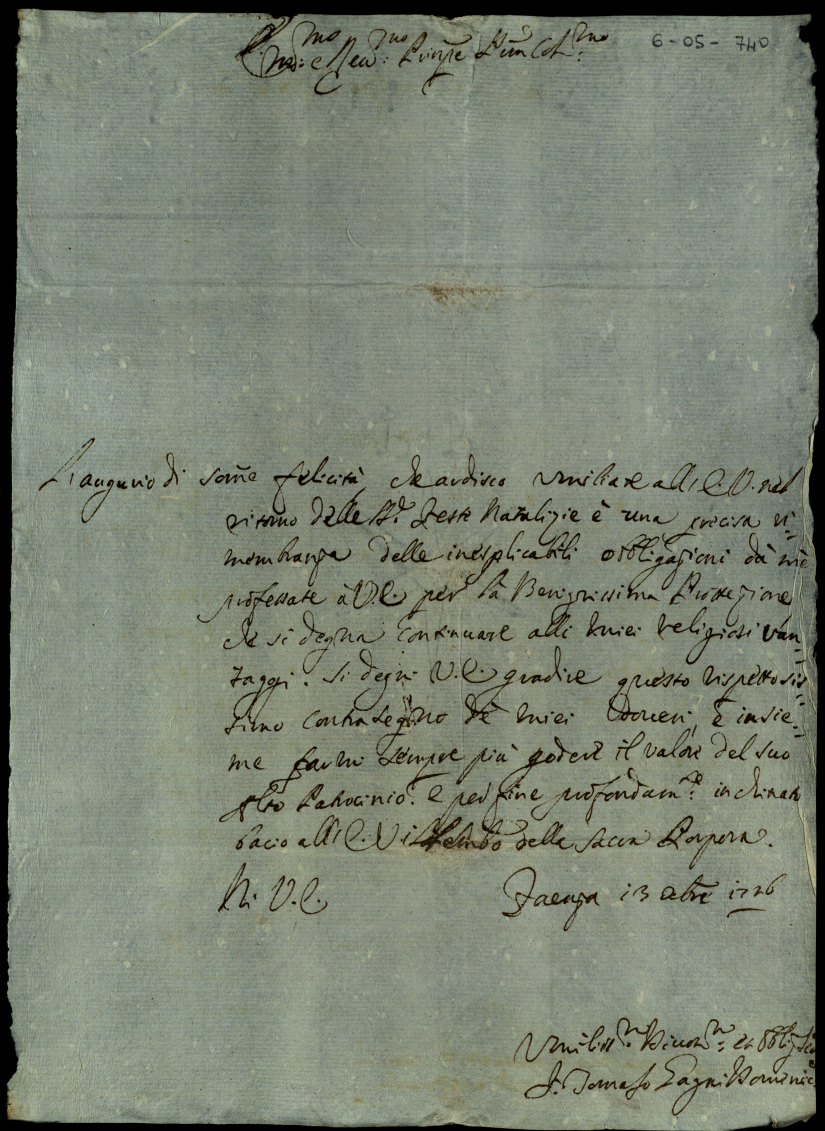 6-05-740
Em.mo: e Rev.mo: Principe Prone Col.mo:
L'augurio di some felicità, che ardisco umiliare all'E.V. nel
ritorno delle SS.e Feste Natalizie è una precisa ri=
membranza delle inesplicabili obbligazioni da me
professate à V.E. per la Benignissima Protezione,
che si degna continuare alli miei religiosi van=
taggi. Si degni V.E. gradire questo rispettosis=
simo contrasegno de miei doveri, e insie=
me farmi sempre più godere il valore del suo
Alto Patrocinio. e per fine profondam.te: inchinato
bacio all'E.V. il Lembo della sacra Porpora.
Di V.E. Faenza 13 xbre 1726
Umiliss.o Divot.o: ed Obblig
F. Tomaso Pagni Domenic